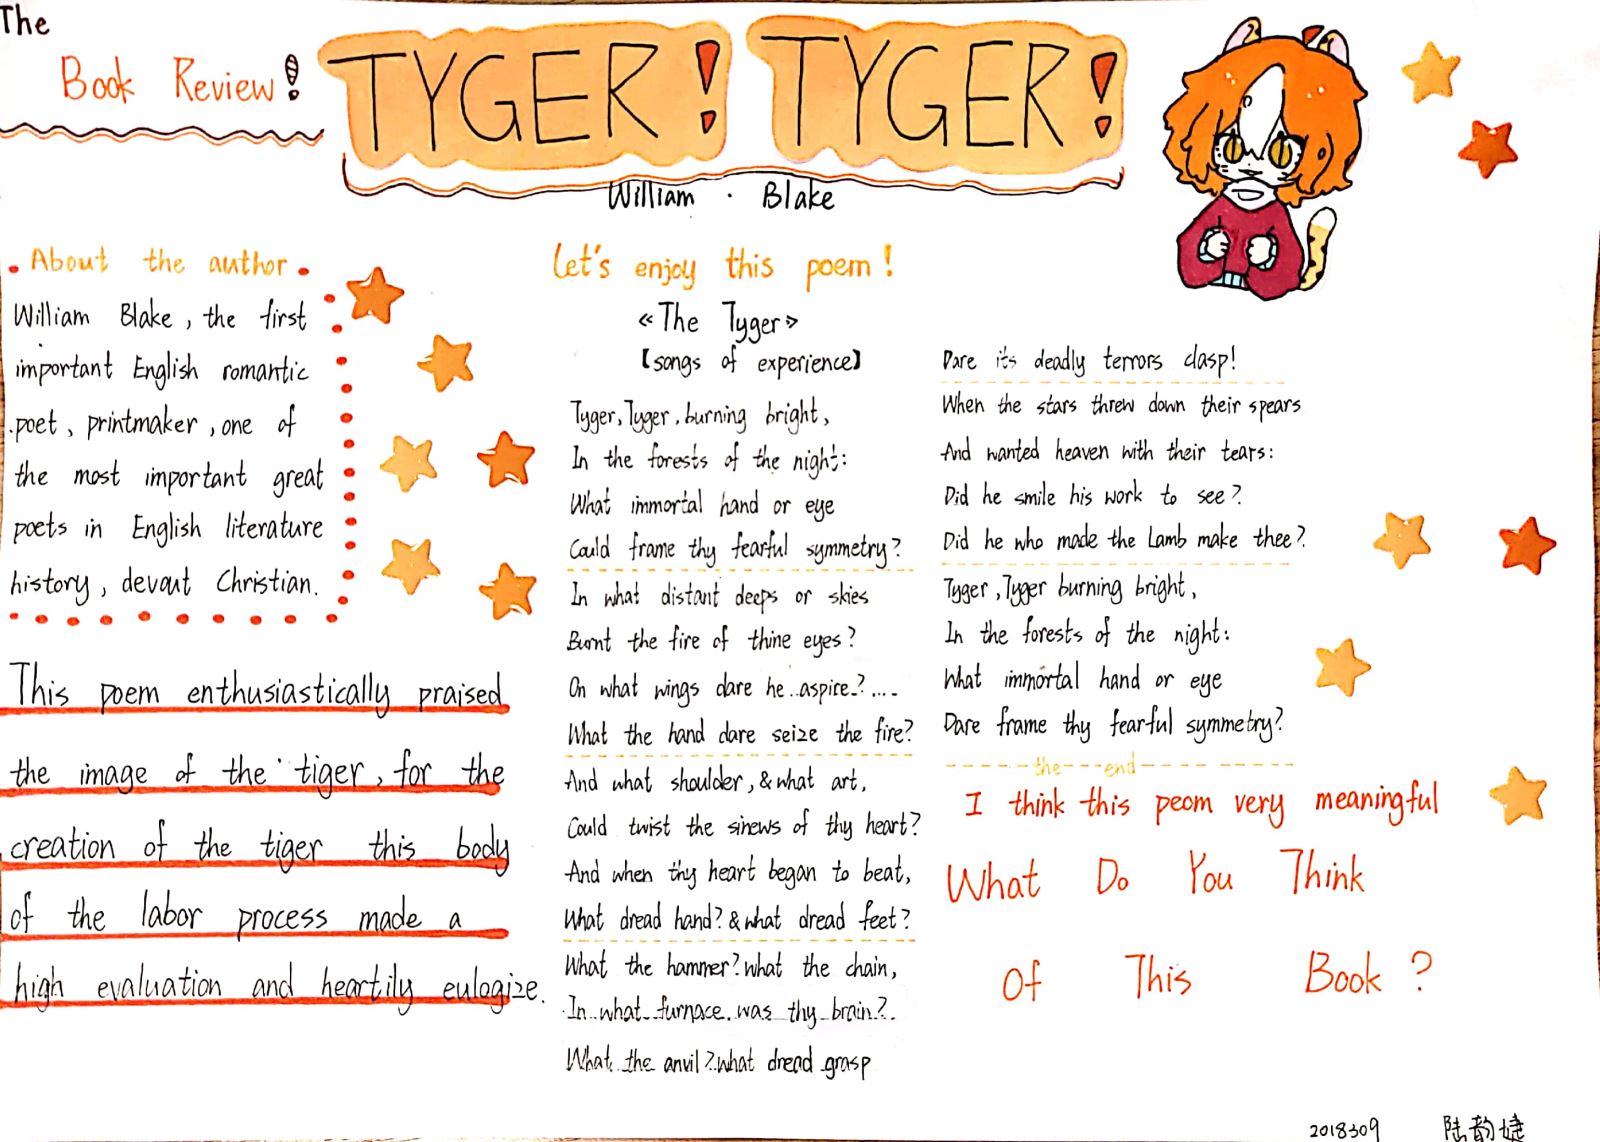 The
Book Review!
TYGER! TYGER!
William · Blake
About the author
William Blake, the first
important English romantic
poet, printmaker, one of
the most important great
poets in English literature
history, devout Christian.
This poem enthusiastically praised
the image of the tiger, for the
creation of the tiger this body
of the labor process made a
high evaluation and heartily eulogize.
Let's enjoy this poem!
《The Tyger》
【songs of experience】
Tyger, Tyger, burning bright,
In the forests of the night:
What immortal hand or eye
Could frame thy fearful symmetry?
In what distant deeps or skies
Burnt the fire of thine eyes?
On what wings dare he aspire?
What the hand dare seize the fire?
And what shoulder, & what art,
Could twist the sinews of thy heart?
And when thy heart began to beat,
What dread hand? & what dread feet?
What the hammer? what the chain,
In what furnace was thy brain?
What the anvil? what dread grasp
Dare its deadly terrors clasp!
When the stars threw down their spears
And wanted heaven with their tears:
Did he smile his work to see?
Did he who made the Lamb make thee?
Tyger, Tyger burning bright,
In the forests of the night:
What immortal hand or eye
Dare frame thy fearful symmetry?
the end
I think this peom very meaningful
What Do You Think
Of This Book?
2018309 陆韵婕